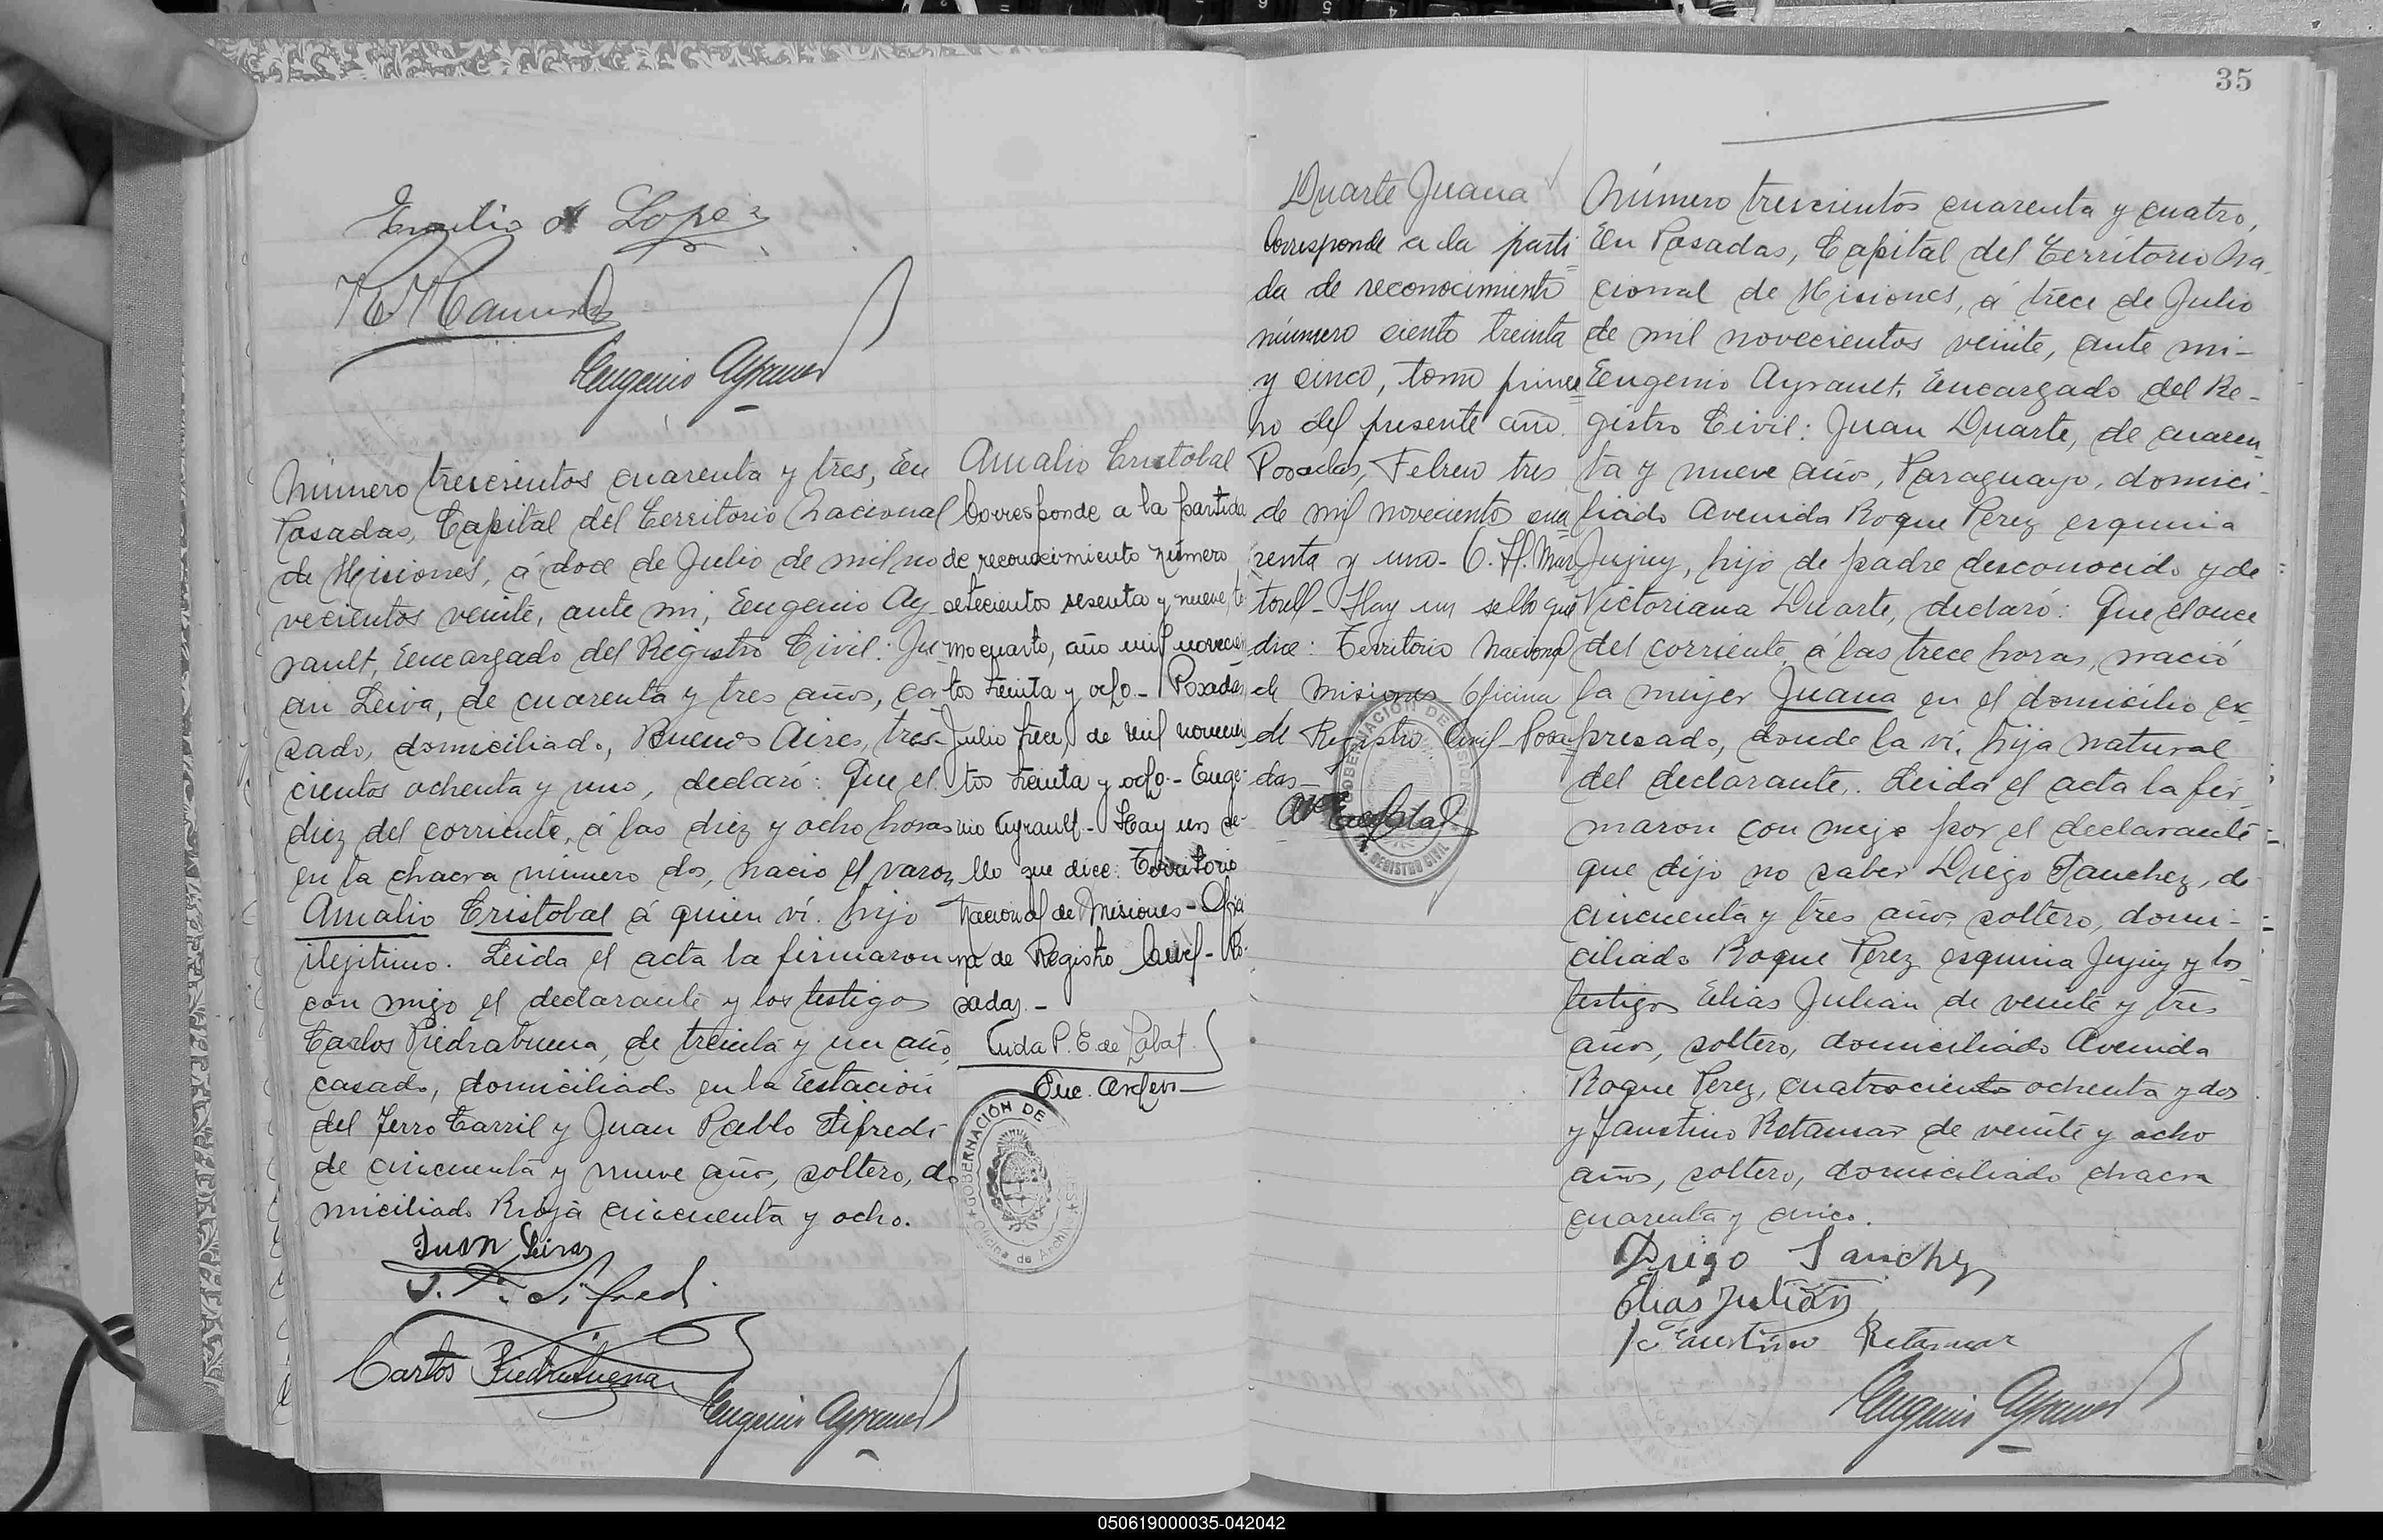 Emilio A Lopez
Eugenio Ayrault
Número trescientos cuarenta y tres, En
Posadas, Capital del Territorio Nacional
de Misiones, á doce de Julio de mil no
vecientos veinte, ante mi, Eugenio Ay-
rault, Encargado del Registro Civil: Ju
an Leiva, de cuarenta y tres años, ca
sado, domiciliado, Buenos Aires, tres-
cientos ochenta y uno, declaró: Que el
diez del corriente, á las diez y ocho horas
en la chacra número dos, nació el varon
Amalio Cristobal á quien ví. hijo
ilejitimo. Leida el acta la firmaron
con migo el declarante y los testigos
Carlos Piedrabuena, de treinta y un año,
casado, domiciliado en la Estación
del Ferro Carril y Juan Pablo Sifredi
de cincuenta y nueve años, soltero, do
miciliado Rioja cincuenta y ocho.
Juan Leiva
J. P. Sifredi
Carlos Piedrabuena
Eugenio Ayrault
Amalio Cristobal
Corresponde a la partida
de reconocimiento número
setecientos sesenta y nueve, to
mo cuarto, año mil novecien
tos treinta y ocho.- Posadas,
Julio trece, de mil novecien
tos treinta y ocho.- Euge-
nio Ayrault.- Hay un se-
llo que dice: Territorio
Nacional de Misiones - Ofici
na de Registro Civil - Po-
sadas.-
P. E. de Labat
Enc. Archivo
GOBERNACIÓN DE
Oficina de Archivo
35
Duarte Juana
Corresponde a la parti-
da de reconocimiento
número ciento treinta
y cinco, tomo prime
ro del presente año.
Posadas, Febrero tres
de mil novecientos cua
renta y uno- C. H. Mar
torell- Hay un sello que
dice: Territorio Nacional
de Misiones Oficina
de Registro Civil- Posa
das-
GOBERNACIÓN DE MISIONES
REGISTRO CIVIL
Número trescientos cuarenta y cuatro,
En Posadas, Capital del Territorio Na-
cional de Misiones, á trece de Julio
de mil novecientos veinte, ante mi-
Eugenio Ayrault, Encargado del Re-
gistro Civil: Juan Duarte, de cuaren
ta y nueve años, Paraguayo, domici-
liado Avenida Roque Perez esquina
Jujuy, hijo de padre desconocido y de
Victoriana Duarte, declaró: Que el once
del corriente, á las trece horas, nació
la mujer Juana en el domicilio ex-
presado, donde la ví, hija natural
del declarante. Leida el acta la fir-
maron con migo por el declarante
que dijo no saber Diego Sanchez, de
cincuenta y tres años, soltero, domi-
ciliado Roque Perez esquina Jujuy y los
testigos Elias Julian de veinte y tres
años, soltero, domiciliado Avenida
Roque Perez, cuatrocientos ochenta y dos
y Faustino Retamar de veinte y ocho
años, soltero, domiciliado chacra
cuarenta y cinco.
Diego Sanchez
Elias Julián
Faustino Retamar
Eugenio Ayrault
050619000035-042042